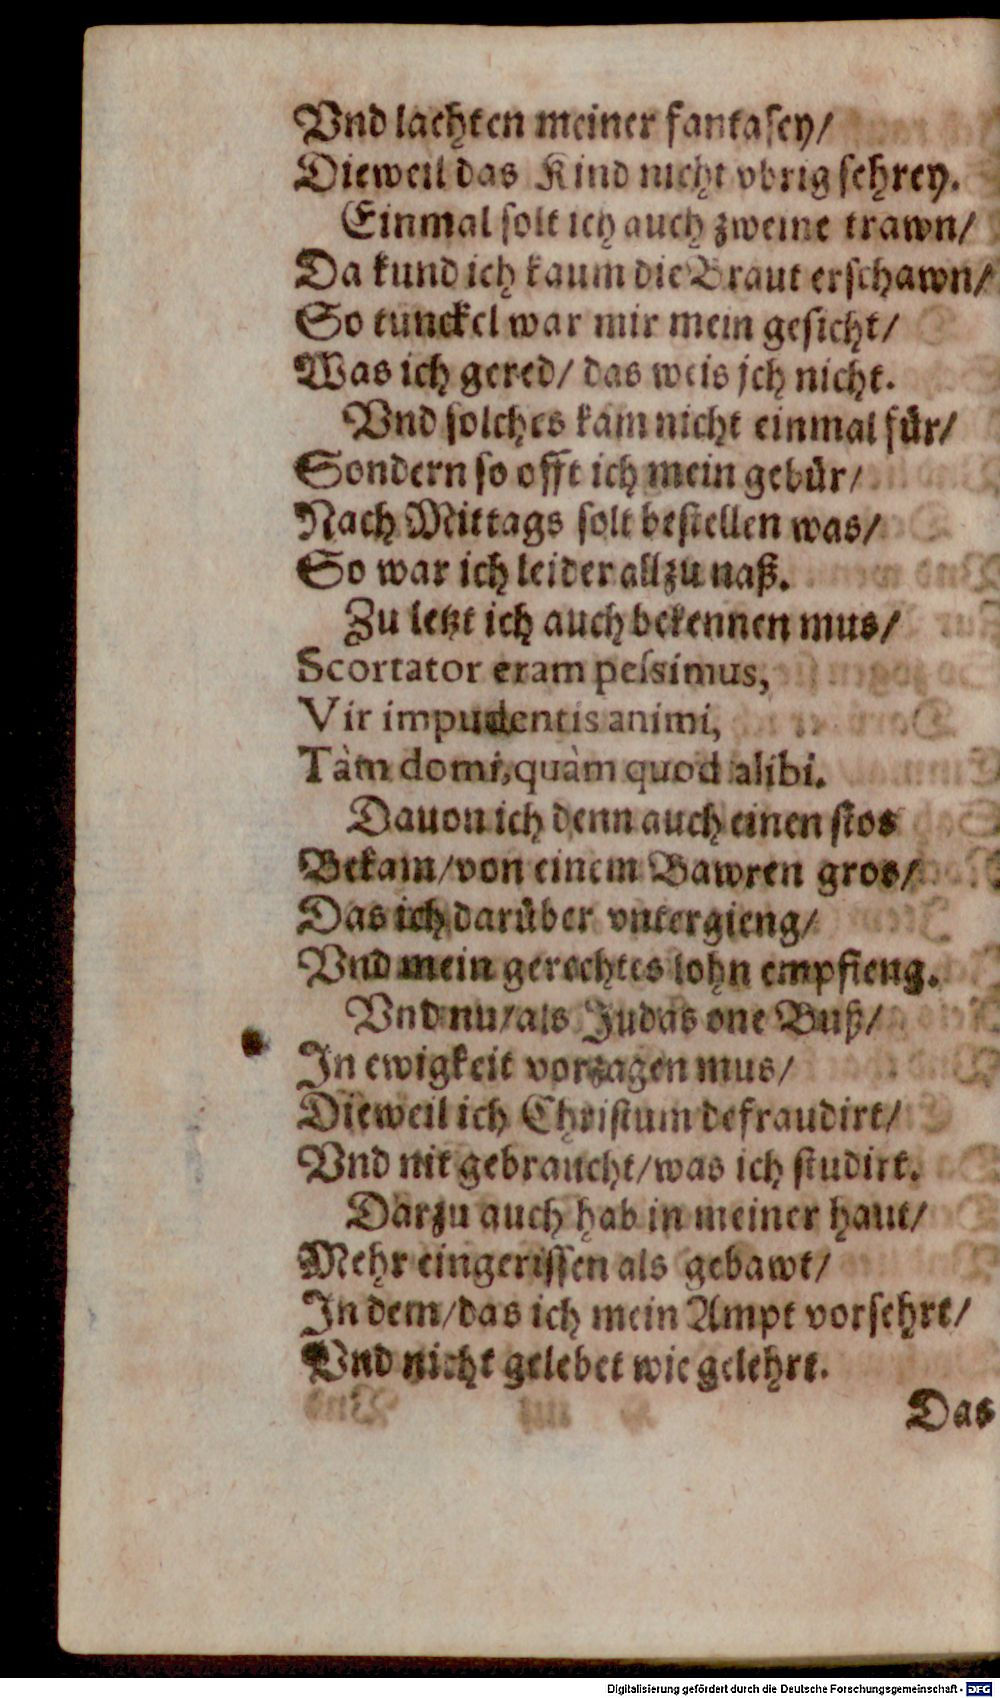 Vnd lachten meiner fantaſey/
Dieweil das Kind nicht vbrig ſchrey.
Einmal ſolt ich auch zweine trawn/
Da kund ich kaum die Braut erſchawn/
So tunckel war mir mein geſicht/
Was ich gered/ das weis jch nicht.
Vnd ſolches kam nicht einmal fuͤr/
Sondern ſo offt ich mein gebuͤr/
Nach Mittags ſolt beſtellen was/
So war ich leider allzu naß.
Zu letzt ich auch bekennen mus/
Scortator eram peſsimus,
Vir impudentis animi,
Tàm domi, quàm quod alibi.
Dauon ich denn auch einen ſtos
Bekam/ von einem Bawren gros/
Das ich daruͤber vntergieng/
Vnd mein gerechtes lohn empfieng.
Vnd nu/ als Judas one Buß/
In ewigkeit vorzagen mus/
Dieweil ich Chriſtum defraudirt/
Vnd nit gebraucht/ was ich ſtudirt.
Darzu auch hab in meiner haut/
Mehr eingeriſſen als gebawt/
In dem/ das ich mein Ampt vorſehrt/
Vnd nicht gelebet wie gelehrt.
Das
Digitalisierung gefördert durch die Deutsche Forschungsgemeinschaft - DFG